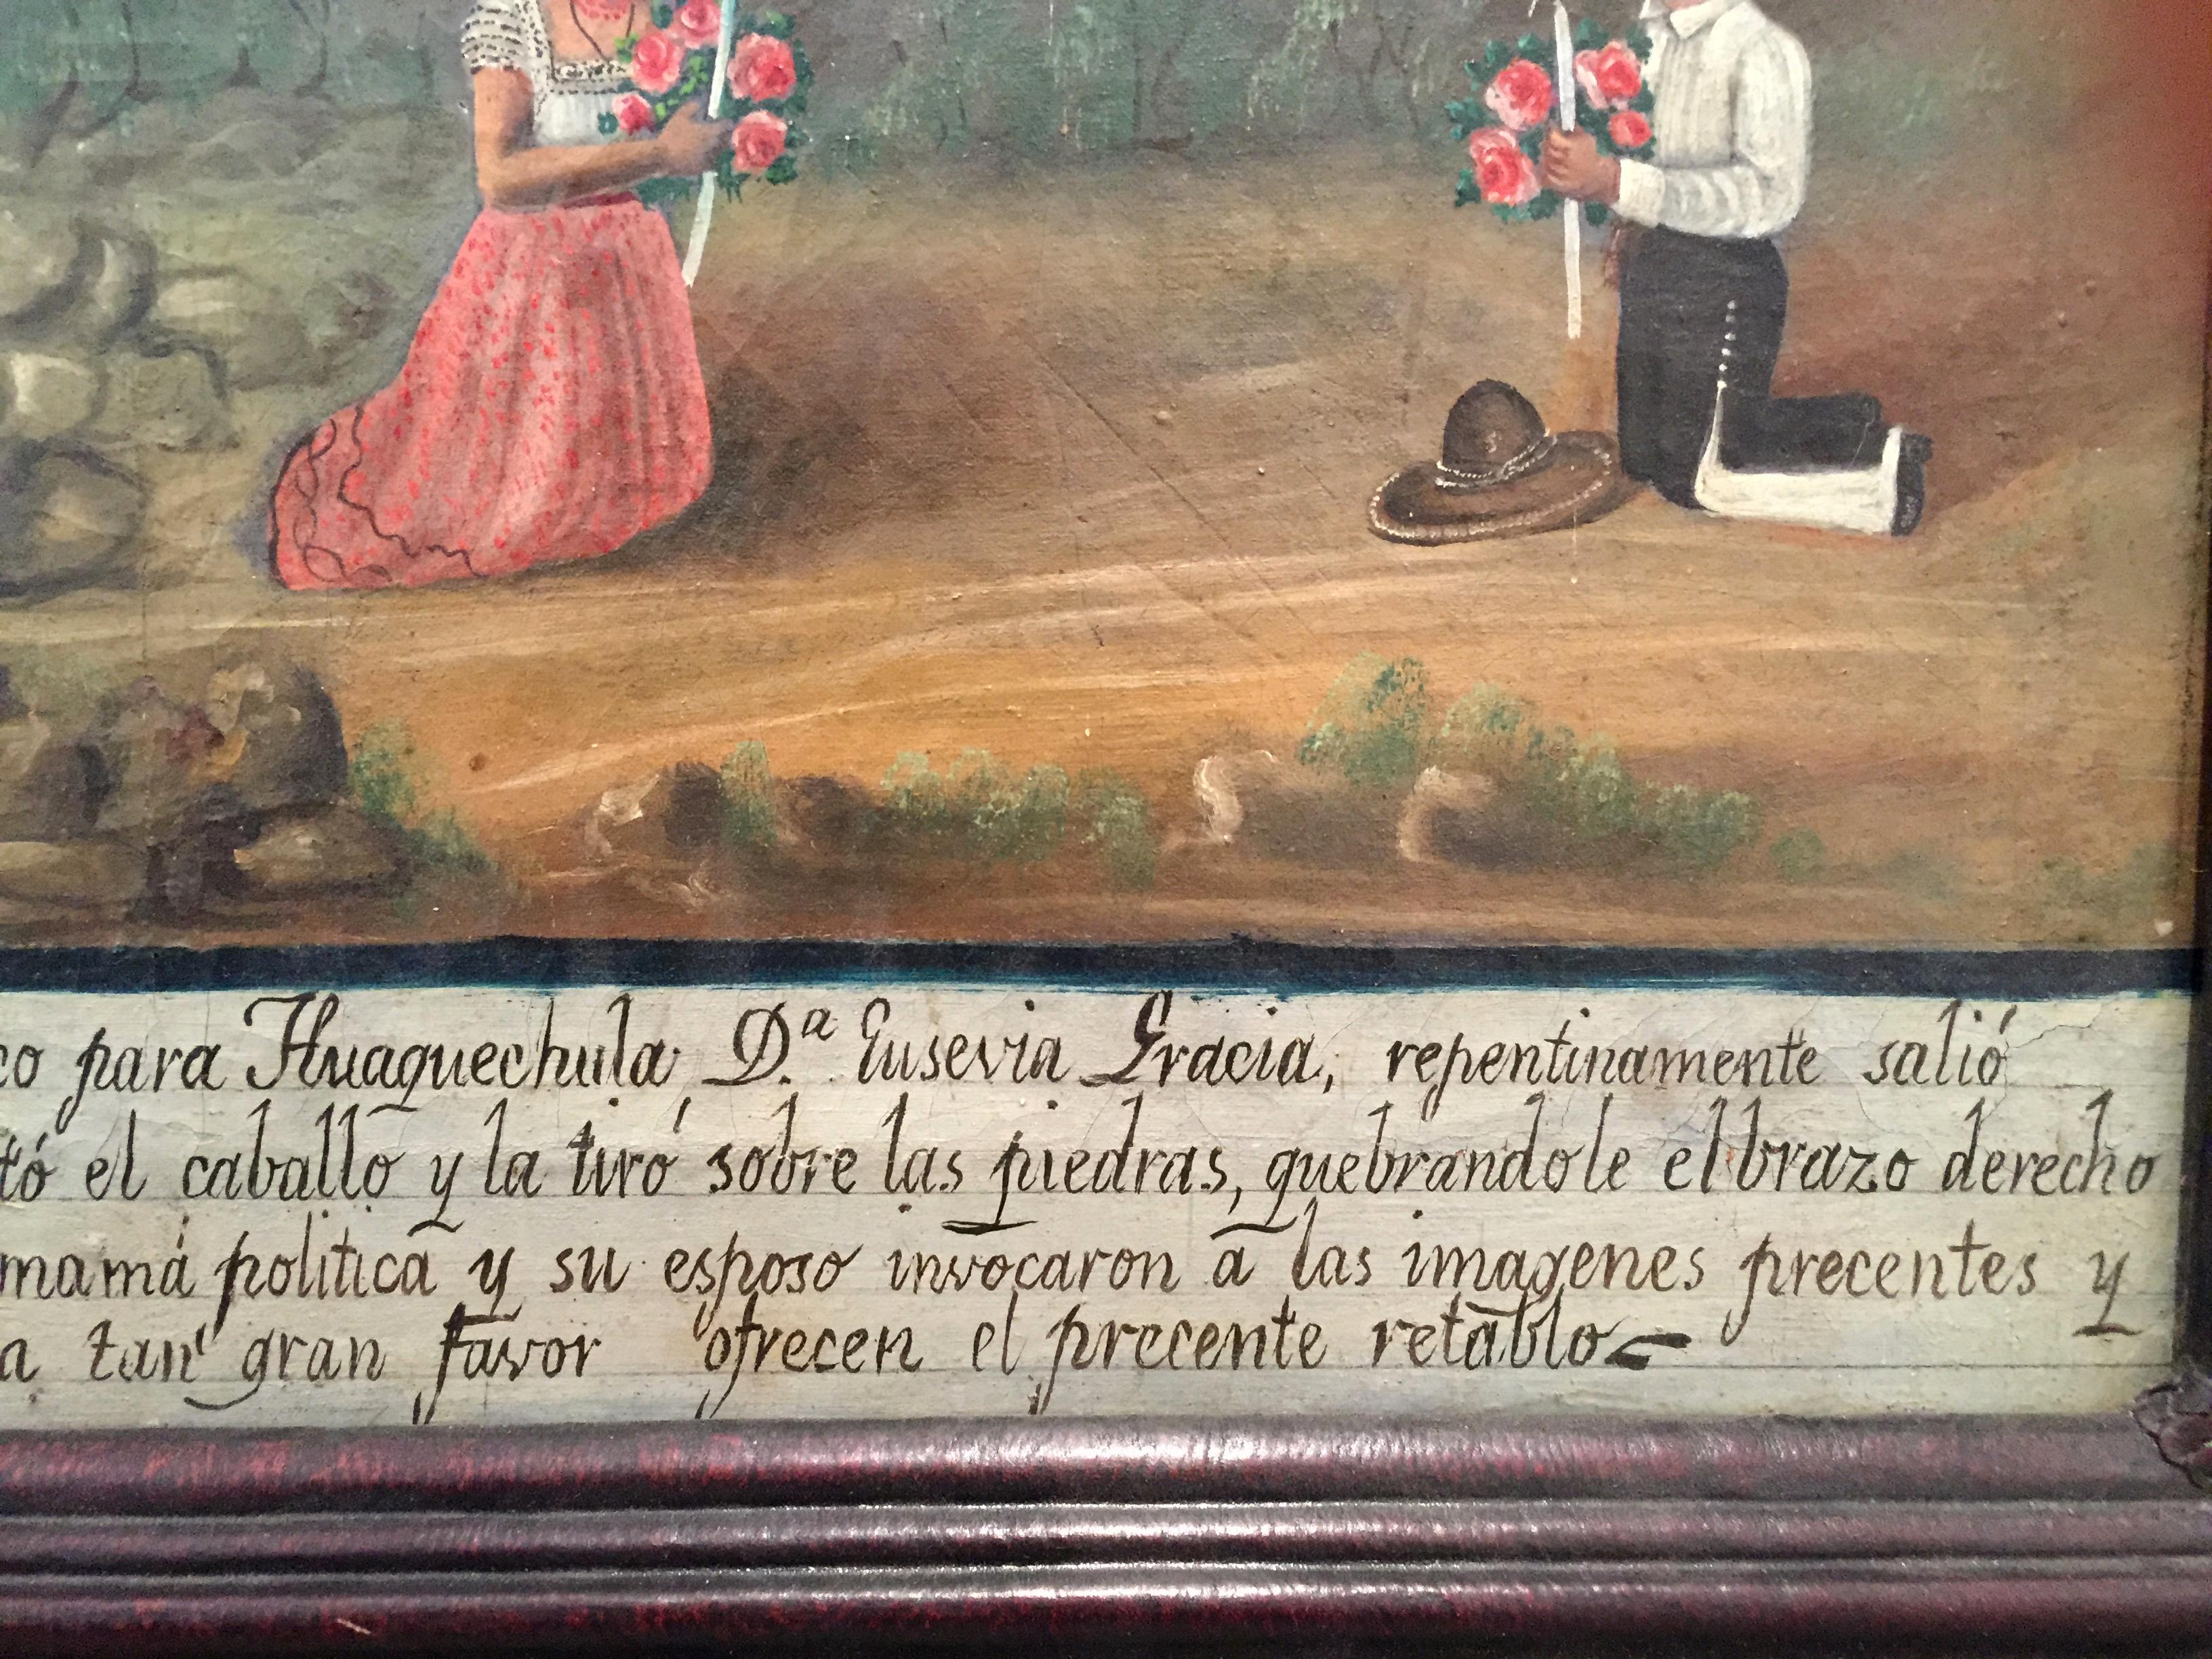 co para Huaquechula, D.ª Eusevia Gracia, repentinamente salió
tó el caballo y la tiró sobre las piedras, quebrandole el brazo derecho
mamá politica y su esposo invocaron a las imagenes precentes y
a tan gran favor ofrecen el precente retablo